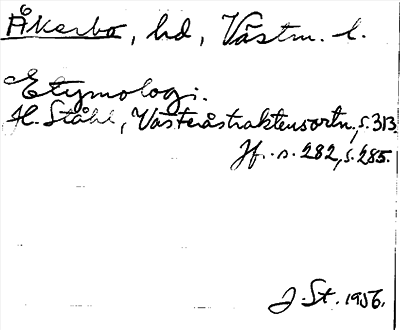 Åkerbo, hd, Västm. l.
Etymologi.
H. Ståhl, Västeråstraktens ortn., s. 313.
Jf. s. 282, s. 285.
J. St. 1956.